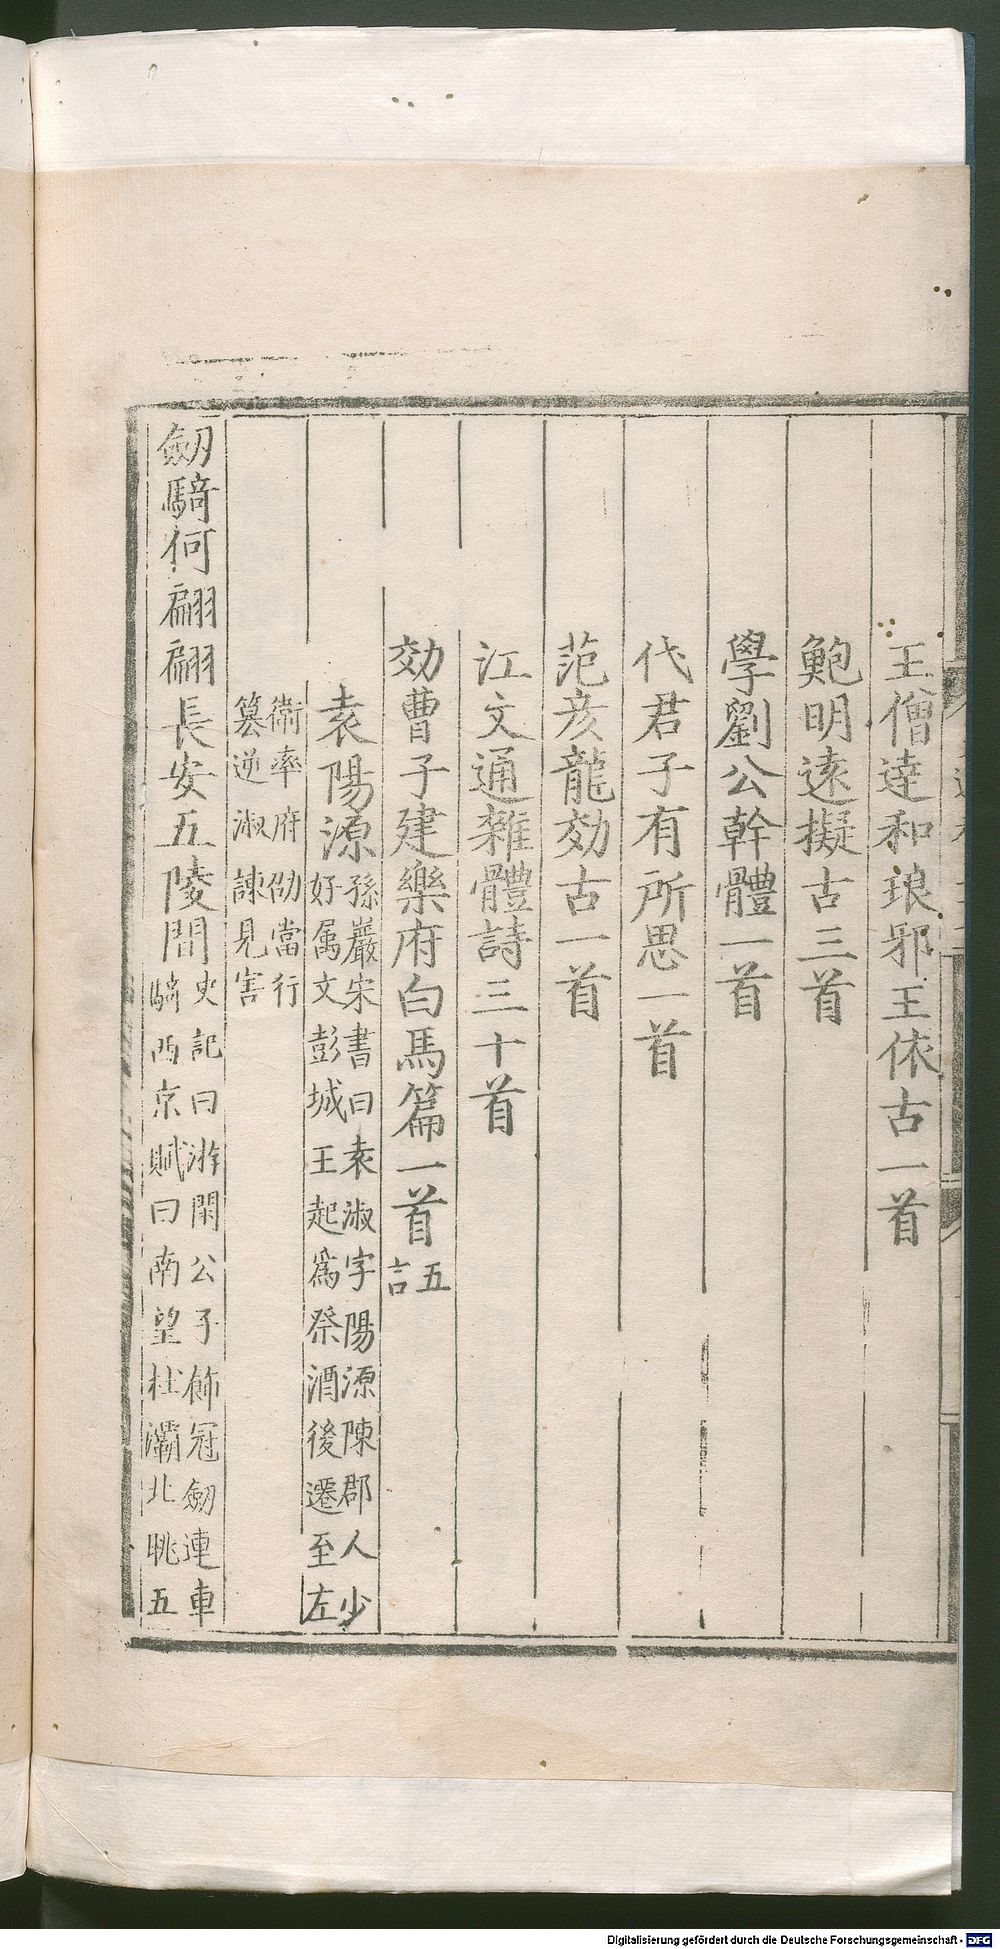 王僧達和琅邪王依古一首
鮑明逺擬古三首
學劉公幹體一首
代君子有所思一首
范彦龍効古一首
江文通雜體詩三十首
効曹子建樂府白馬篇一首五言
袁陽源孫巖宋書曰袁淑字陽源陳郡人少好属文彭城王起爲祭酒後遷至左
衞率府劭當行篡逆淑諫見害
劒騎何翩翩長安五陵間史記曰游閑公子飾冠劒連車騎西京賦曰南望杜灞北眺五
Digitalisierung gefördert durch die Deutsche Forschungsgemeinschaft - DFG